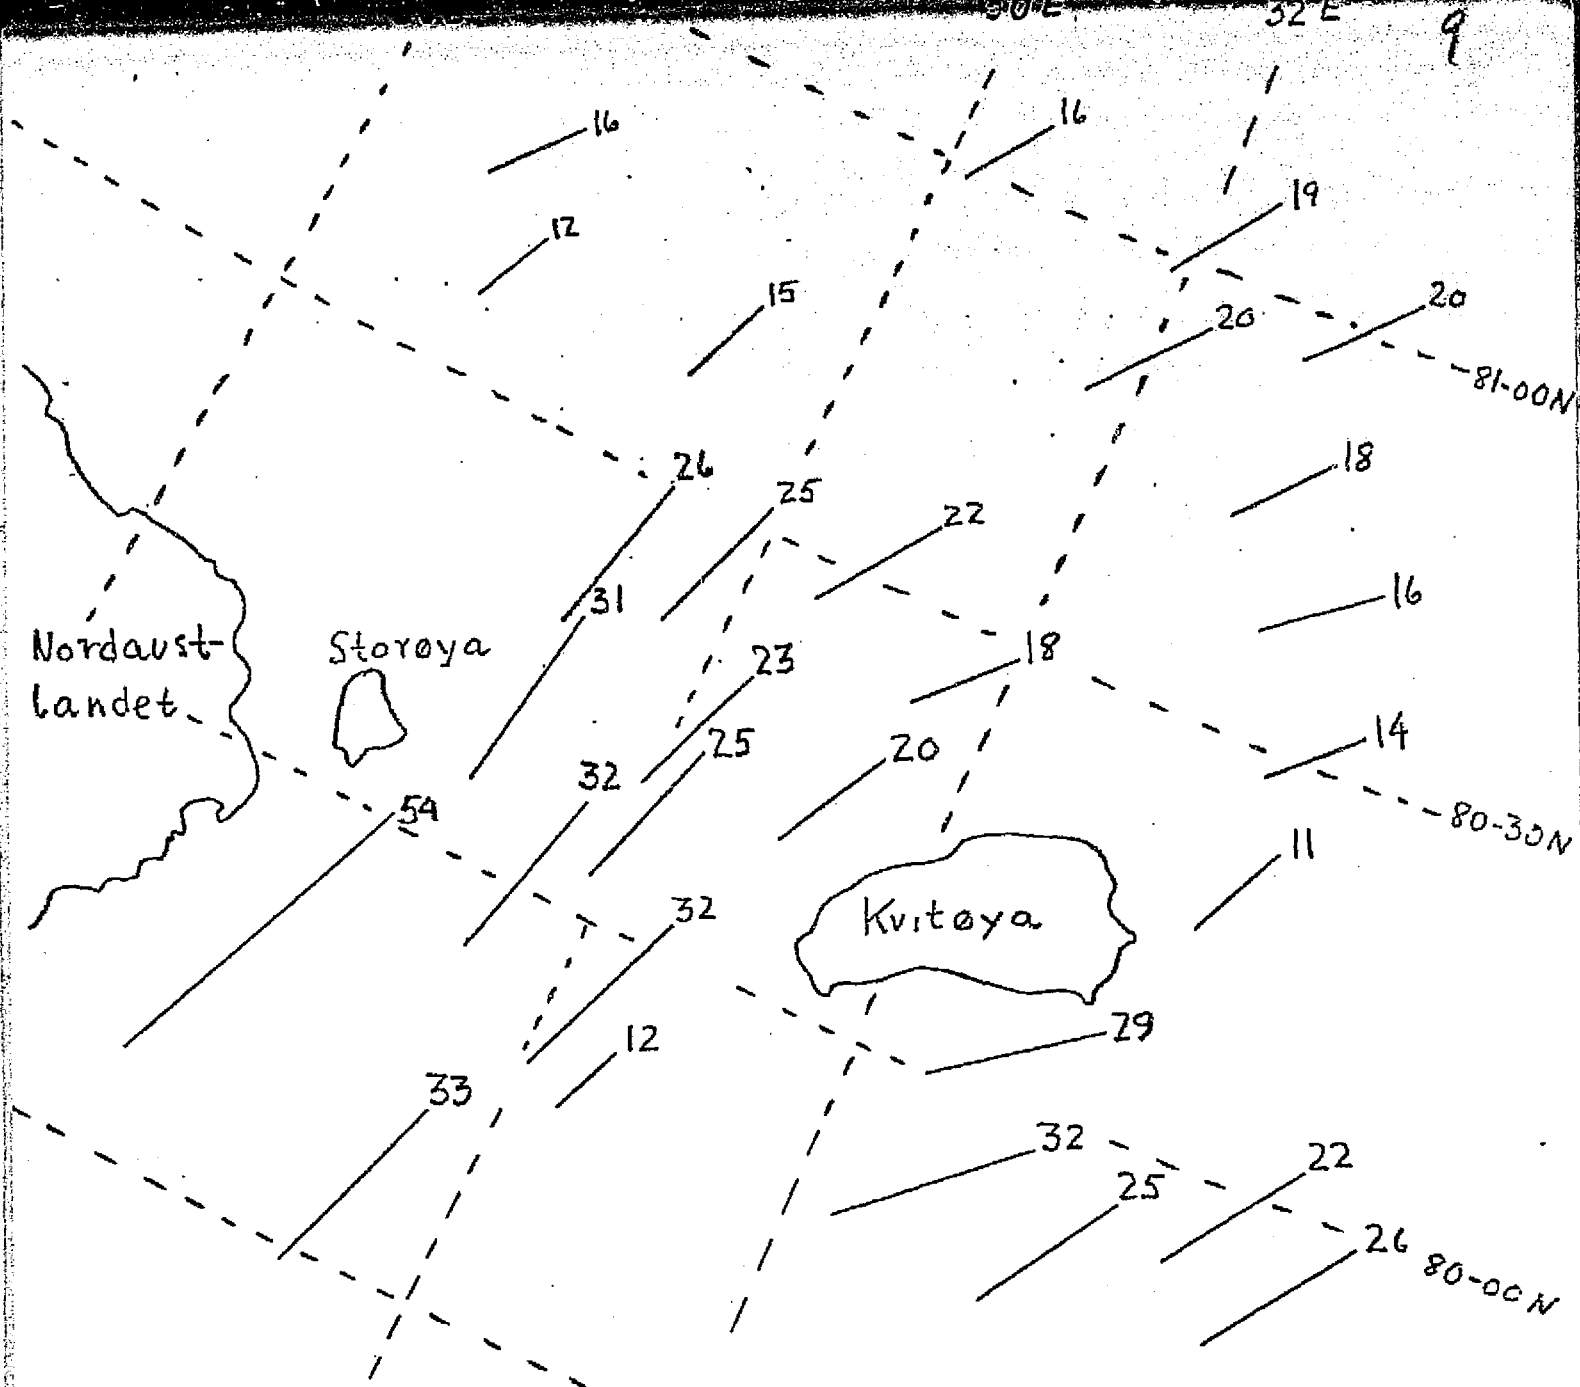 30E
32E
9
16
16
19
12
15
20
20
81-00N
26
25
18
22
31
16
Nordaust-
landet
Storøya
18
23
25
14
20
32
54
80-30N
11
32
Kvitøya
12
29
33
32
22
25
26
80-00N